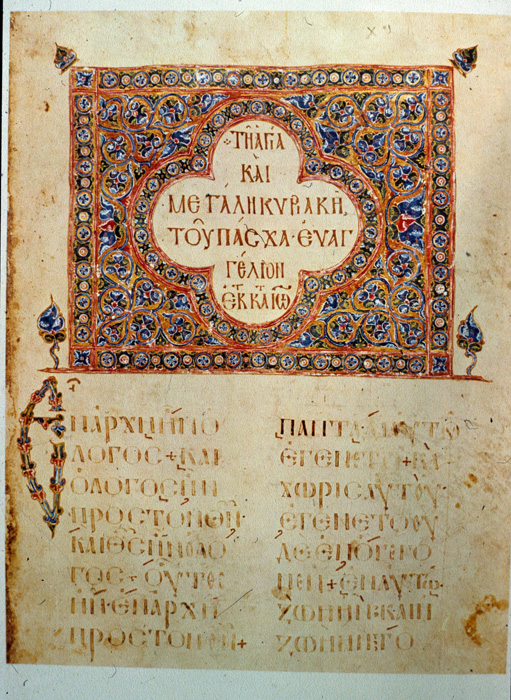 ΤΗ ΑΓΙΑ
ΚΑΙ
ΜΕΓΑΛΗ ΚΥΡΙΑΚΗ
ΤΟΥ ΠΑΣΧΑ · ΕΥΑΓ
ΓΕΛΙΟΝ
ΕΚ ΚΑΤ ΙΩ
ΕΝ ΑΡΧΗ ΗΝ Ο
ΛΟΓΟΣ + ΚΑΙ
Ο ΛΟΓΟΣ ΗΝ
ΠΡΟΣ ΤΟΝ ΘΝ
ΚΑΙ ΘΣ ΗΝ Ο ΛΟ
ΓΟΣ + ΟΥΤΟΣ
ΗΝ ΕΝ ΑΡΧΗ
ΠΡΟΣ ΤΟΝ ΘΝ +
ΠΑΝΤΑ ΔΙ ΑΥΤΟΥ
ΕΓΕΝΕΤΟ + ΚΑΙ
ΧΩΡΙΣ ΑΥΤΟΥ
ΕΓΕΝΕΤΟ ΟΥ
ΔΕ ΕΝ Ο ΓΕΓΟ
ΝΕΝ + ΕΝ ΑΥΤΩ
ΖΩΗ ΗΝ · ΚΑΙ Η
ΖΩΗ ΗΝ ΤΟ